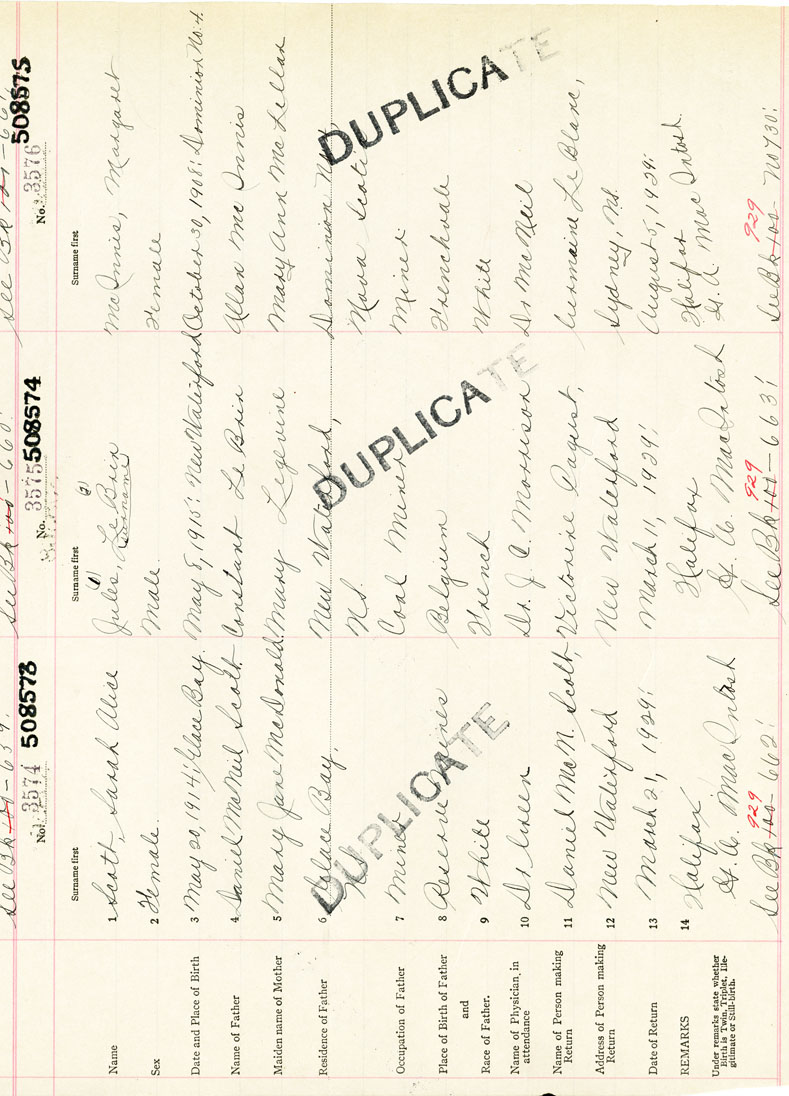 Name
Sex
Date and Place of Birth
Name of Father
Maiden name of Mother
Residence of Father
Occupation of Father
Place of Birth of Father
and
Race of Father.
Name of Physician in
attendance
Name of Person making
Return
Address of Person making
Return
Date of Return
REMARKS
Under remarks state whether
Birth is Twin, Triplet, Ille-
gitimate or Still-birth.
See Bk 100 - 659.
No. 3574 508573
Surname first
1 Scott, Sarah Alice
2 Female
3 May 20, 1914; Glace Bay.
4 Daniel McNeil Scott
5 Mary Jane McDonald
6 Glace Bay,
NS
7 Miner
8 Reserve Mines
9 White
10 Dr Green
11 Daniel McN. Scott,
12 New Waterford
13 March 21, 1929;
14 Halifax
G. A. MacIntosh
929
See Bk 100 - 662;
DUPLICATE
See Bk 100 - 660.
No. 3575 508574
Surname first
(1) (2)
Jules, Le Brix
(Surname)
Male.
May 8, 1915; New Waterford
Constant Le Brix
Mary
New Waterford,
NS.
Coal Miner
Belgium
French
Dr. J. C. Morrison
Victorine
New Waterford
March 11, 1929;
Halifax
G. A. MacIntosh
929
See Bk 100 - 663;
DUPLICATE
See Bk 100 - 661
No. 3576 508575
Surname first
McInnis, Margaret
Female
October 30, 1908; Dominion No. 4.
Allan McInnis
Mary Ann McLellan
Dominion No 4,
Nova Scotia
Miner
Frenchvale
White
Dr McNeil
Germaine Le Blanc,
Sydney, NS.
August 5, 1929;
Halifax
G. A. MacIntosh.
929
See Bk 100 - No 730;
DUPLICATE